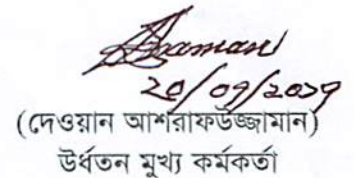 20/09/2017
(দেওয়ান আশরাফউজ্জামান)
উর্ধতন মুখ্য কর্মকর্তা